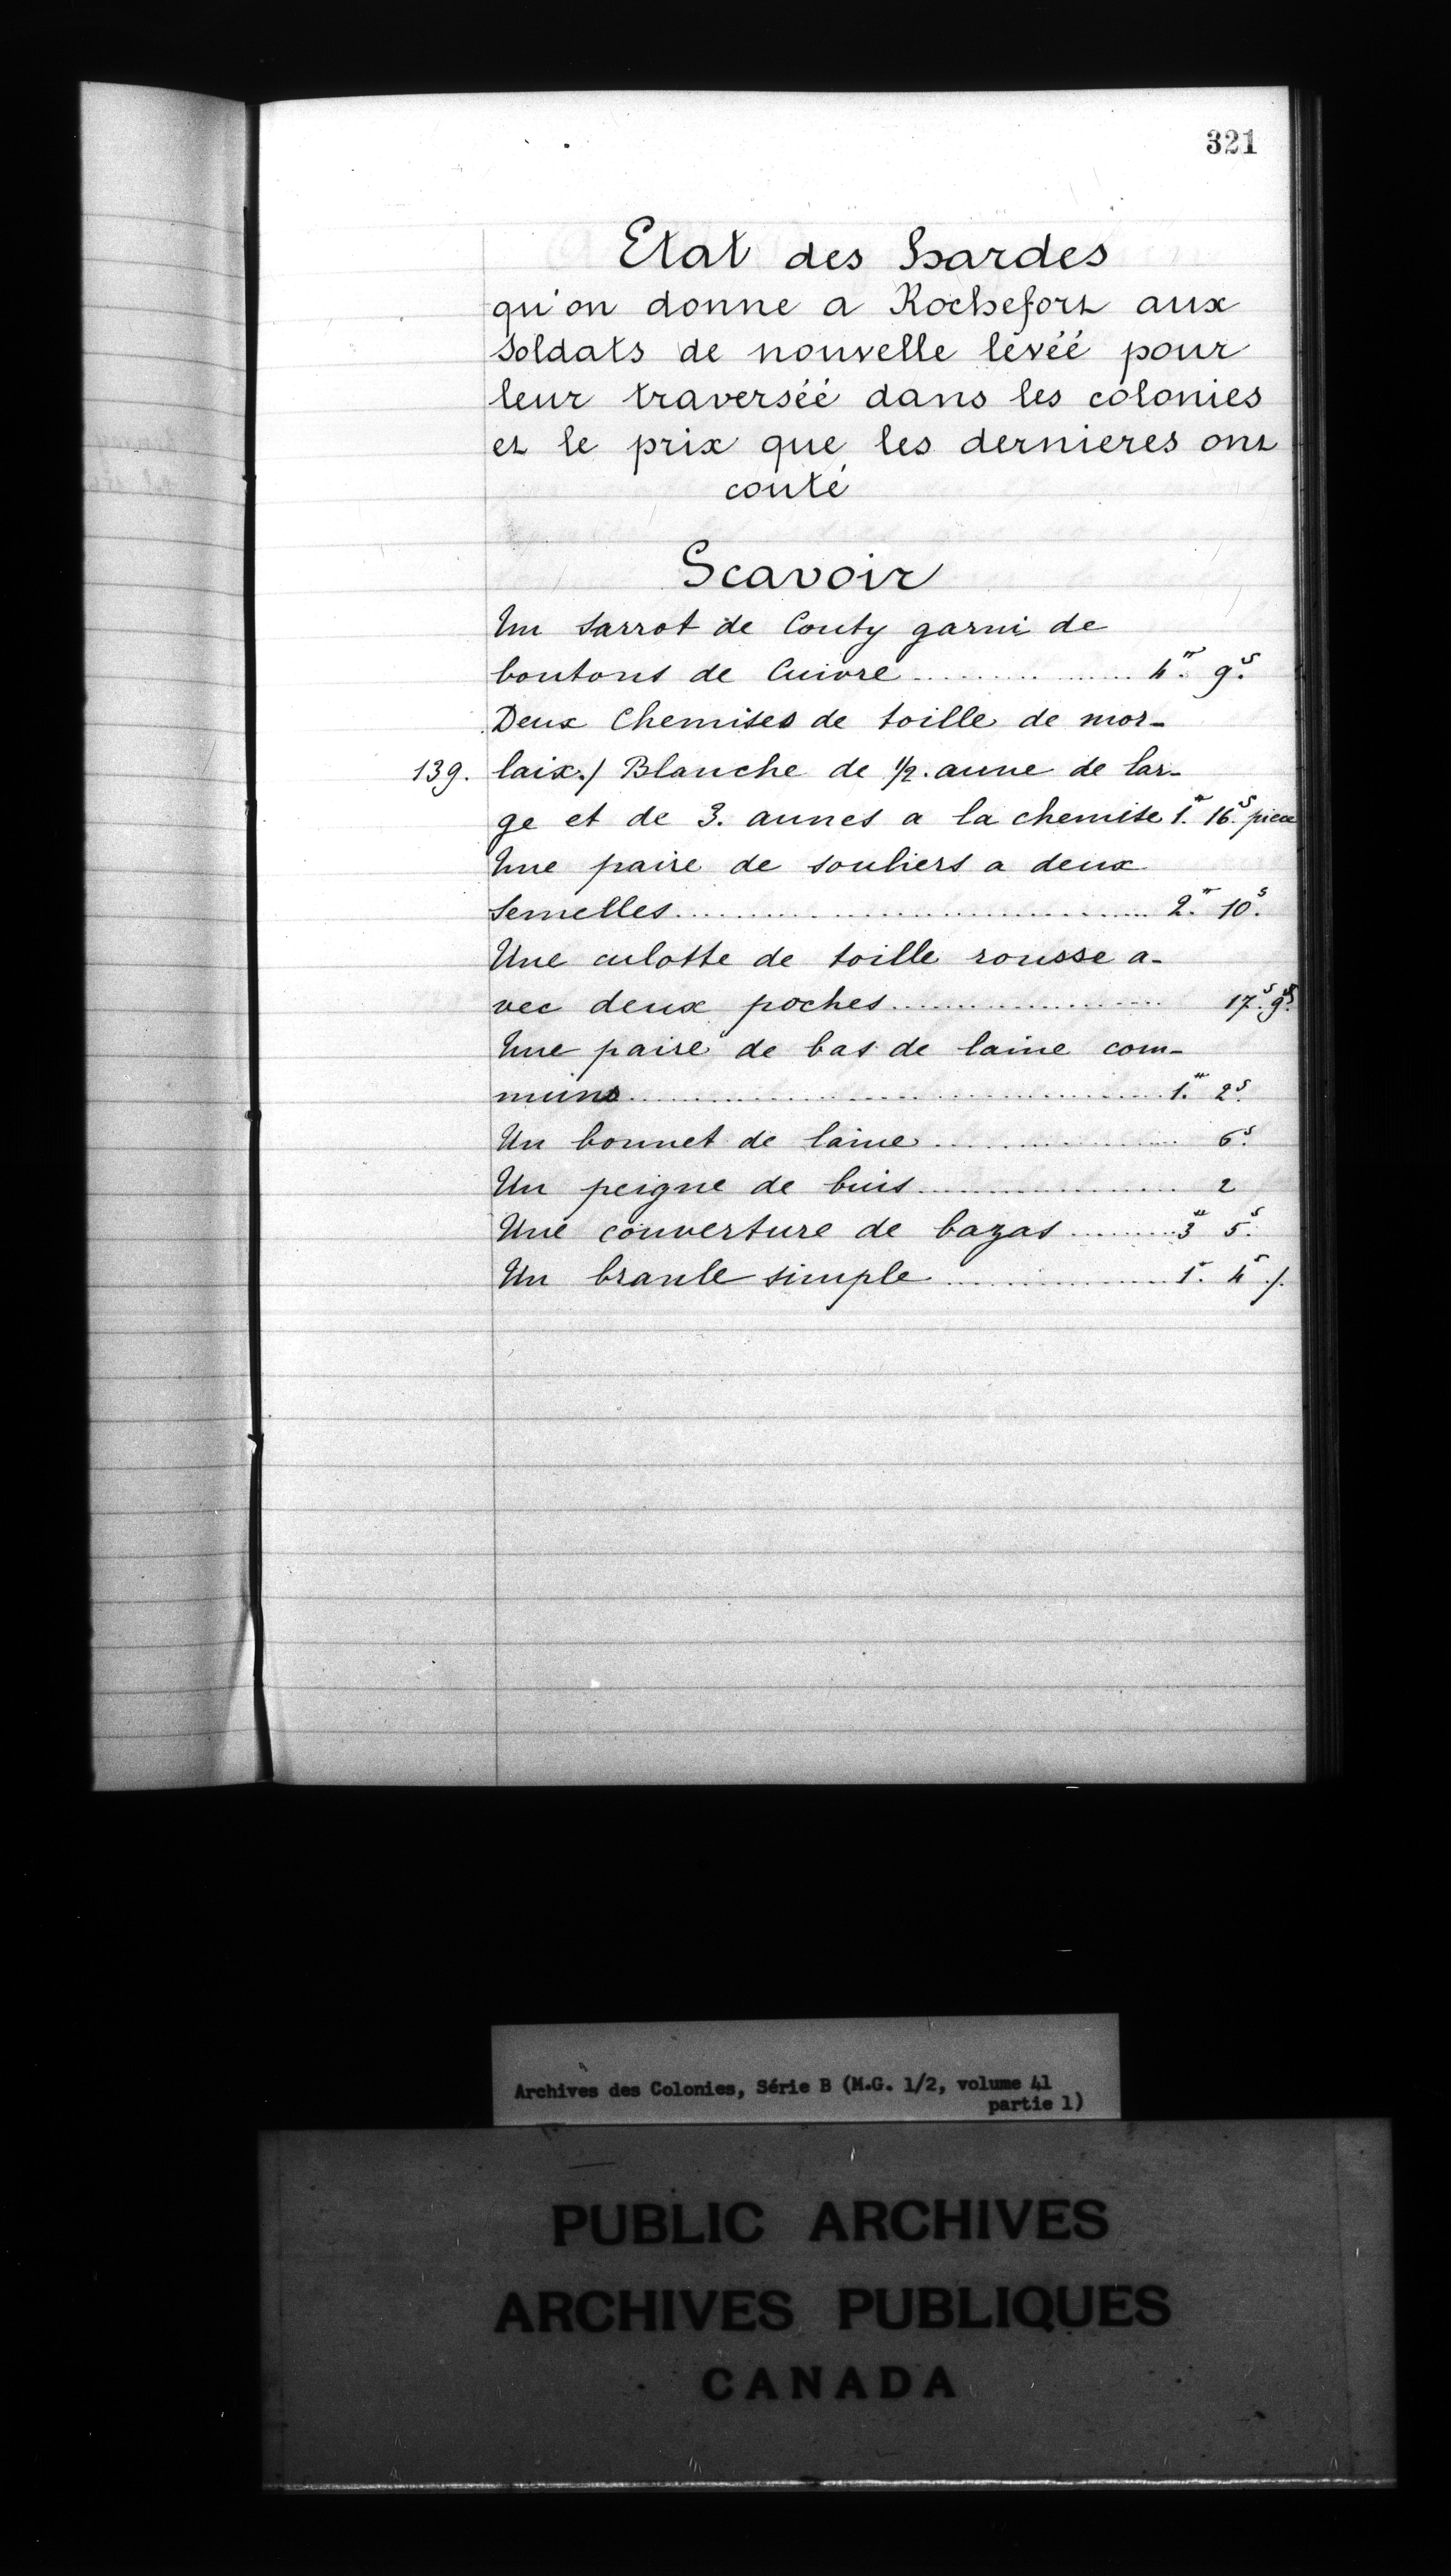 321
Etat des hardes
qu'on donne a Rochefort aux
soldats de nouvelle levéé pour
leur traverséé dans les colonies
et le prix que les dernieres ont
couté
Scavoir
Un sarrot de Couty garni de
boutons de Cuivre ............ 4.# 9.s
Deux Chemises de toille de mor-
139. laix./ Blanche de 1/2. aune de lar-
ge et de 3. aunes a la chemise 1.# 16.s piece
Une paire de souliers a deux
semelles ............ 2.# 10.s
Une culotte de toille rousse a-
vec deux poches ............ 17.s 9.d
Une paire de bas de laine com-
muns ............ 1.# 2.s
Un bonnet de laine ............ 6.s
Un peigne de buis ............ 2
Une couverture de bazas ............ 3# 5.s
Un branle simple ............ 1.# 4s /.
Archives des Colonies, Série B (M.G. 1/2, volume 41
partie 1)
PUBLIC ARCHIVES
ARCHIVES PUBLIQUES
CANADA